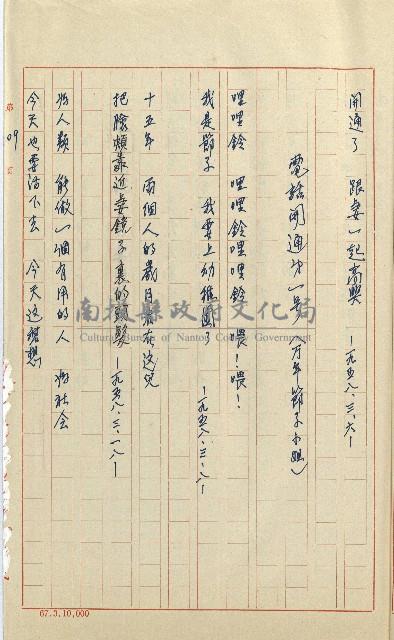 開通了 跟妻一起高興 ー一九五八.三.六ー
電話開通第一號(万年節子小姐)
哩哩鈴 哩哩鈴哩哩鈴 喂!喂!
我是節子 我要上幼稚園了 ー一九五八.三.八ー
十五年 兩個人的歲月就在這兒
把臉頰靠近妻鏡子裏的頭髮 ー一九五八.三.一八ー
為人類 能做一個有用的人 為社会
今天也要活下去 今天这樣想
第 09 頁
南投縣政府文化局
Cultural Bureau of Nantou County Government
67.3.10,000